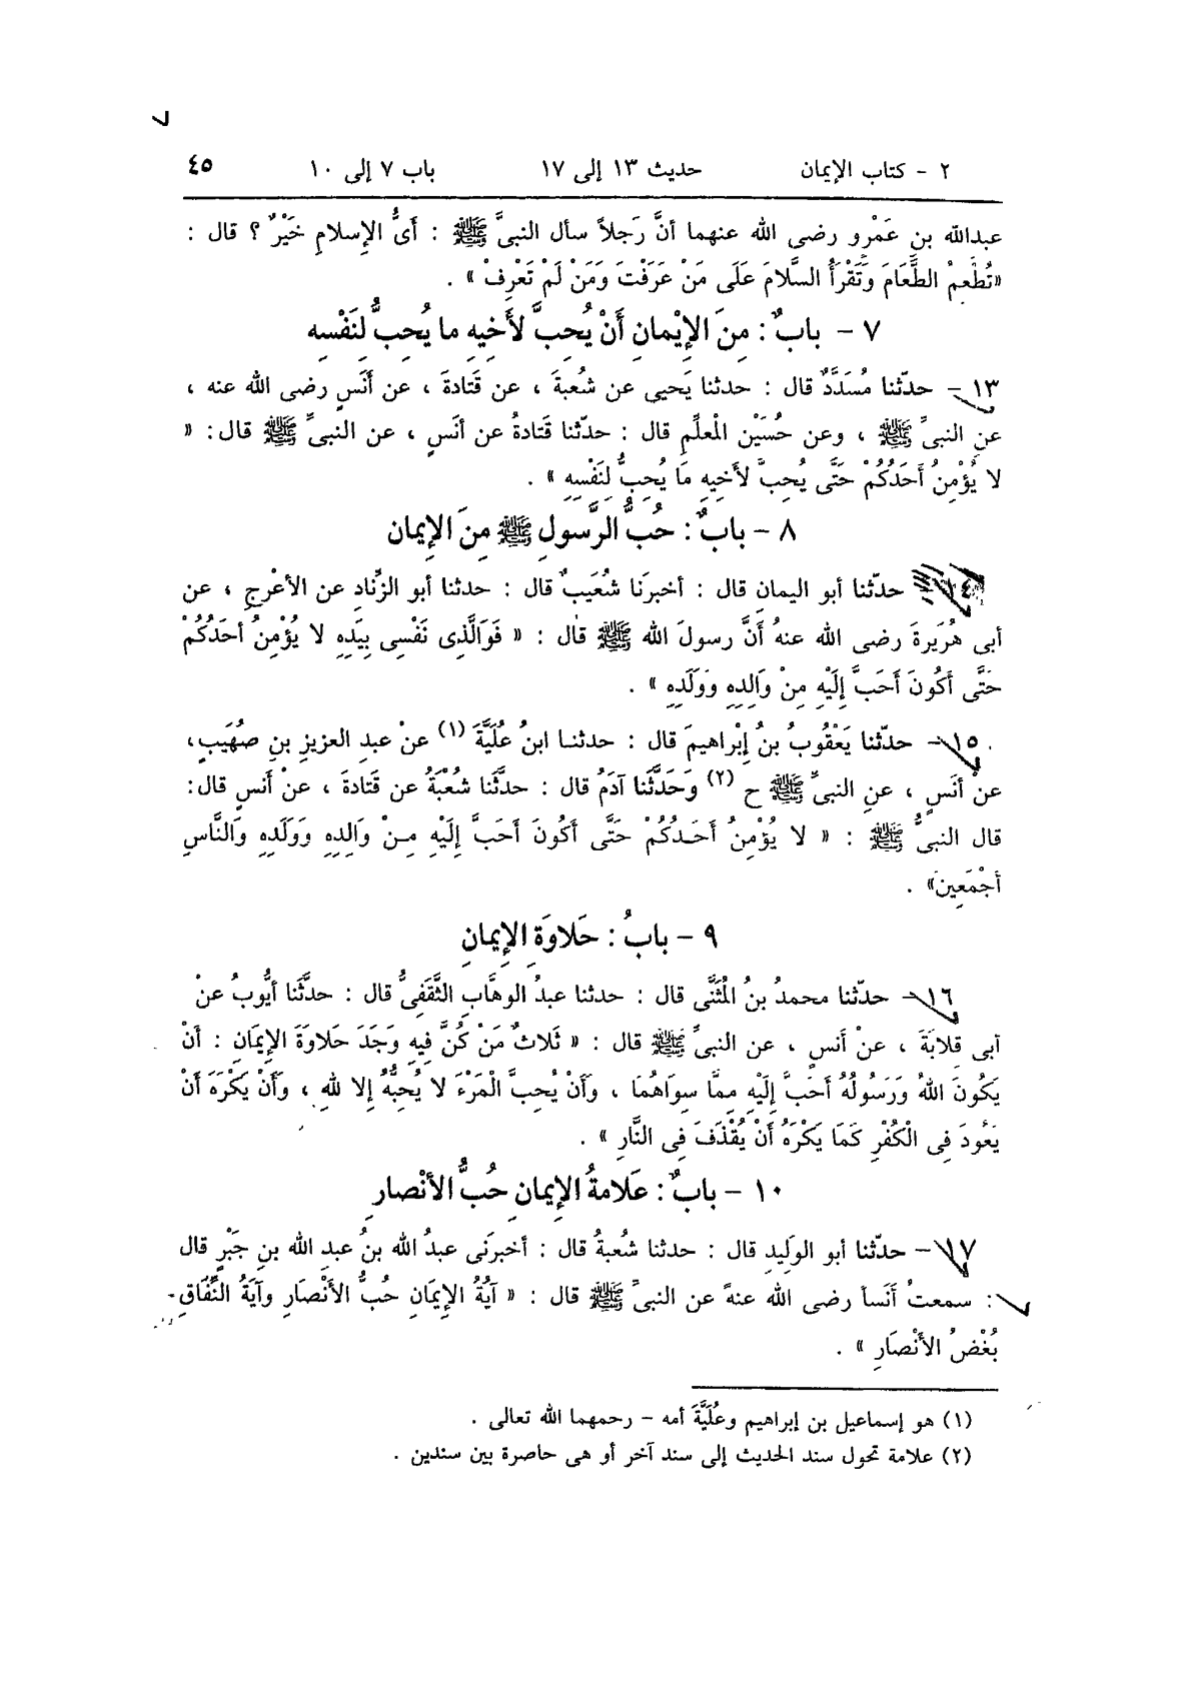 ٧
٢ - كتاب الإيمان حديث ١٣ إلى ١٧ باب ٧ إلى ١٠ ٤٥
عبدالله بنِ عَمْرٍو رضى الله عنهما أنَّ رَجلاً سأل النبىَّ ﷺ : أَىُّ الإِسلامِ خَيْرٌ ؟ قال :
«تُطْعِمُ الطَّعَامَ وَتَقْرَأُ السَّلامَ عَلَى مَنْ عَرَفْتَ وَمَنْ لَمْ تَعْرِفْ» .
٧ - بابٌ : مِنَ الإِيْمانِ أَنْ يُحِبَّ لأَخِيهِ ما يُحِبُّ لِنَفْسِه
١٣ - حدّثنا مُسَدَّدٌ قال : حدثنا يَحيى عن شُعبةَ ، عن قَتادةَ ، عن أَنَسٍ رضى الله عنه ،
عنِ النبىِّ ﷺ ، وعن حُسَيْنٍ الْمعلِّمِ قال : حدّثنا قَتادةُ عن أنَسٍ ، عن النبىِّ ﷺ قال : «
لا يُؤْمِنُ أَحَدُكُمْ حَتَّى يُحِبَّ لأَخِيهِ مَا يُحِبُّ لِنَفْسِهِ » .
٨ - بابٌ : حُبُّ الرَّسولِ ﷺ مِنَ الإِيمان
١٤ - حدّثنا أبو اليمانِ قال : أخبرَنا شُعَيبٌ قال : حدثنا أبو الزِّنادِ عن الأعْرجِ ، عن
أبى هُرَيرةَ رضى الله عنهُ أَنَّ رسولَ الله ﷺ قال : « فَوَالَّذِى نَفْسِى بِيَدِهِ لا يُؤْمِنُ أحَدُكُمْ
حَتَّى أَكُونَ أَحَبَّ إِلَيْهِ مِنْ وَالِدِهِ وَوَلَدِهِ » .
١٥ - حدّثنا يَعْقُوبُ بنُ إِبْراهيمَ قال : حدثنا ابنُ عُلَيَّةَ (١) عنْ عبدِ العزيزِ بنِ صُهَيبٍ،
عن أنَسٍ ، عنِ النبىِّ ﷺ ح (٢) وَحَدَّثَنا آدَمُ قال : حدَّثَنا شُعْبَةُ عن قَتادةَ ، عنْ أنسٍ قال:
قال النبىُّ ﷺ : « لا يُؤْمِنُ أَحَدُكُمْ حَتَّى أَكُونَ أَحَبَّ إِلَيْهِ مِنْ وَالِدِهِ وَوَلَدِهِ وَالنَّاسِ
أجْمَعِينَ» .
٩ - بابُ : حَلاوَةِ الإِيمانِ
١٦ - حدّثنا محمدُ بنُ الْمُثَنَّى قال : حدثنا عبدُ الوهَّابِ الثَّقَفِىُّ قال : حدَّثَنا أيُّوبُ عنْ
أبى قِلابَةَ ، عنْ أنسٍ ، عن النبىِّ ﷺ قال : « ثَلاثٌ مَنْ كُنَّ فِيهِ وَجَدَ حَلاوَةَ الإِيمَانِ : أَنْ
يَكُونَ اللهُ وَرَسُولُهُ أَحَبَّ إِلَيْهِ مِمَّا سِوَاهُمَا ، وَأَنْ يُحِبَّ الْمَرْءَ لا يُحِبُّهُ إِلا للهِ ، وَأَنْ يَكْرَهَ أَنْ
يَعُودَ فِى الْكُفْرِ كَمَا يَكْرَهُ أَنْ يُقْذَفَ فِى النَّارِ » .
١٠ - بابٌ : عَلامةُ الإِيمانِ حُبُّ الأَنْصارِ
١٧ - حدّثنا أبو الوَلِيدِ قال : حدثنا شُعبةُ قال : أخبرَنى عبدُ الله بنُ عبدِ الله بنِ جَبْرٍ قال
: سمعتُ أَنَساً رضى الله عنهُ عن النبىِّ ﷺ قال : « آيَةُ الإِيمَانِ حُبُّ الأَنْصَارِ وآيَةُ النِّفَاقِ
بُغْضُ الأَنْصَارِ » .
(١) هو إسماعيل بن إبراهيم وعُلَيَّةَ أمه - رحمهما الله تعالى .
(٢) علامة تحول سند الحديث إلى سند آخر أو هى حاصرة بين سندين .